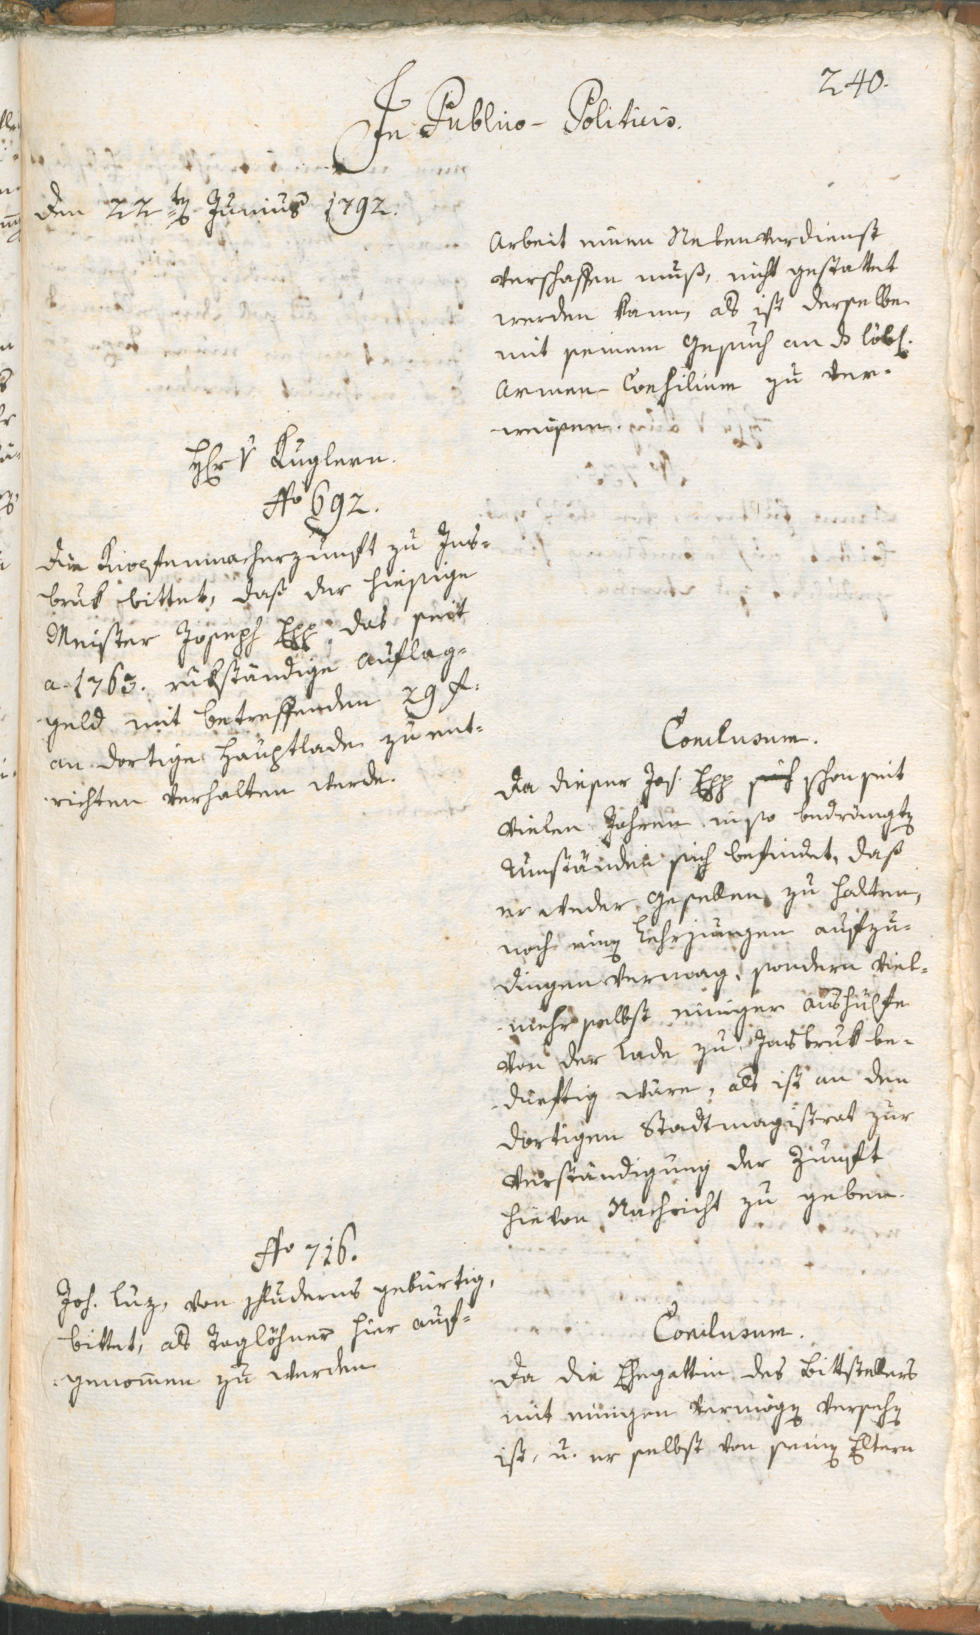 240.
In Publico-Politicis.
den 22t Junius 1792.
Arbeit einen Nebenverdienst
verschaffen muß, nicht gestattet
werden kann, als ist derselbe
mit seinem Gesuch an d löbl.
Armen-Consilium zu ver-
weisen.
Hr v Kuglern.
No 692.
die Knopfenmacherzunft zu Ins-
bruk bittet, daß der hiesige
Meister Joseph Epp das seit
a. 1763. rükständige Auflag-
geld mit betreffenden 29 f.
an dortige Hauptlade zu ent-
richten verhalten werde.
Conclusum.
Da dieser Jos. Epp sich schon seit
vielen Jahren in so bedrängt
Umständen sich befindet, daß
er weder Gesellen zu halten,
noch ein Lehrjungen aufzu-
dingen vermag, sondern viel-
mehr selbst einiger Aushülfe
von der Lade zu Insbruk be-
dürftig wäre, als ist an den
dortigen Stadtmagistrat zur
Verständigung der Zunft
hievon Nachricht zu geben.
No 716.
Joh. Luz, von Schluderns gebürtig,
bittet, als Taglöhner hier auf-
genomen zu werden
Conclusum.
Da die Ehegattin des Bittstellers
mit einigen Vermög verseh
ist, u. er selbst von sein Eltern